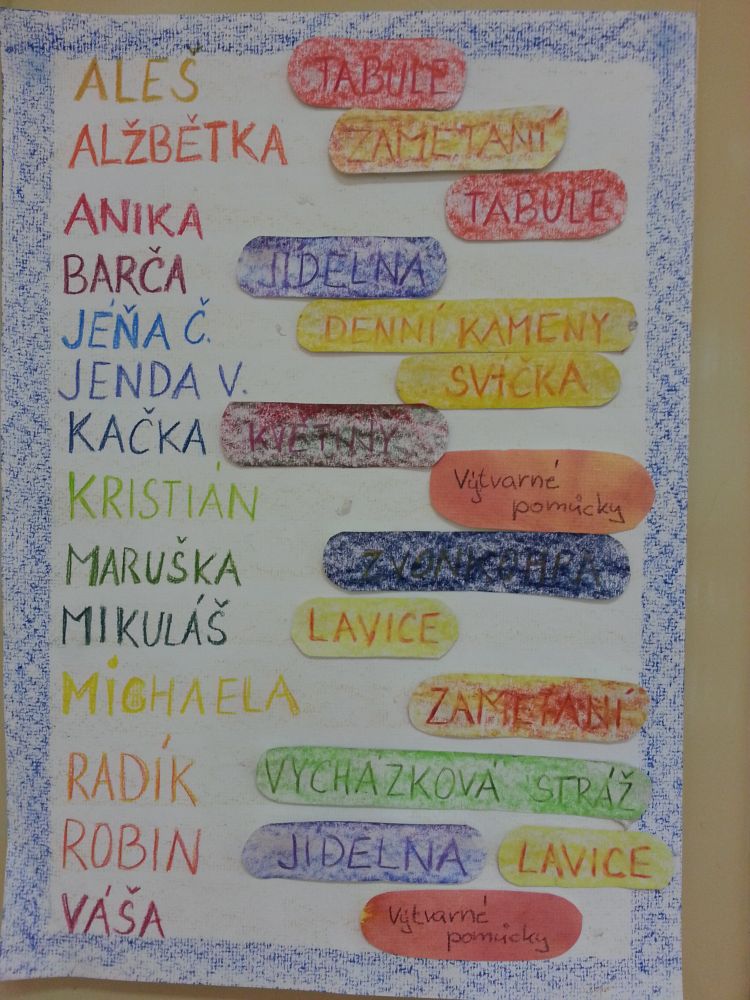 ALEŠ TABULE
ALŽBĚTKA ZAMETANÍ
ANIKA TABULE
BARČA JÍDELNA
JEŇA Č. DENNÍ KAMENY
JENDA V. SVÍČKA
KAČKA KVĚTINY
KRISTIÁN Výtvarné
pomůcky
MARUŠKA ZVONKOHRA
MIKULÁŠ LAVICE
MICHAELA ZAMETANÍ
RADÍK VYCHÁZKOVÁ STRÁŽ
ROBIN JÍDELNA LAVICE
VÁŠA Výtvarné
pomůcky